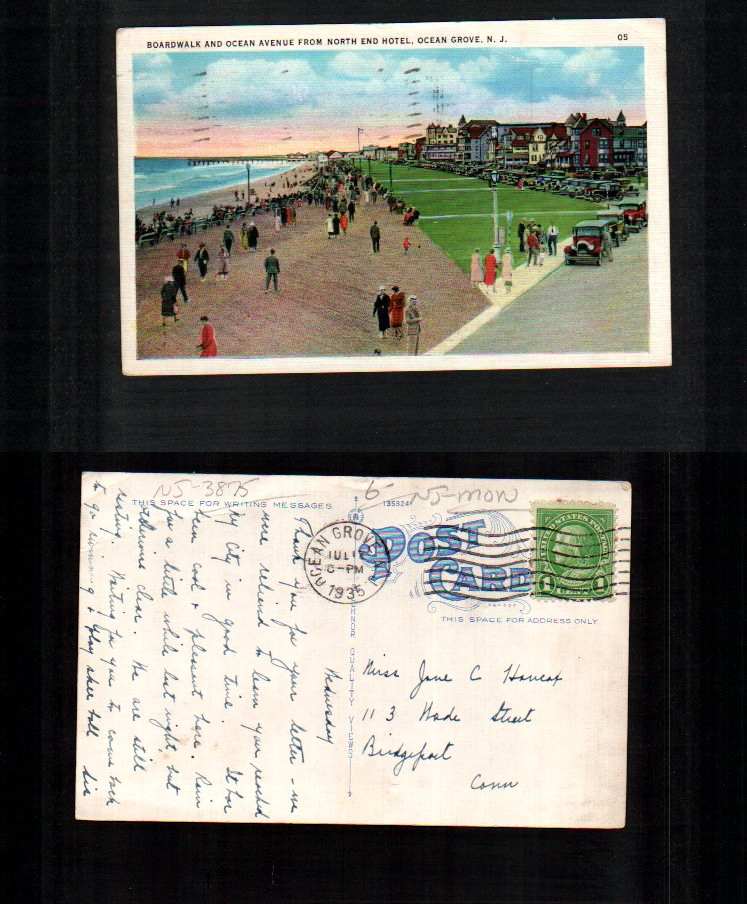 BOARDWALK AND OCEAN AVENUE FROM NORTH END HOTEL, OCEAN GROVE, N. J.
05
NJ-3875
6
NJ-MON
THIS SPACE FOR WRITING MESSAGES
135924
POST
CARD
OCEAN GROVE
JUL
-PM
1935
UNITED STATES POSTAGE
THIS SPACE FOR ADDRESS ONLY
QUALITY VIEWS
Miss Jane C
113 Wade Street
Bridgeport
Conn
Wednesday
Thank you for your letter - we
were relieved to learn you reached
city in good time. It has
been cool & pleasant here. Rain
for a little while last night, but
otherwise clear. We are still
resting. Waiting for you to come back
to go swimming & play skee ball